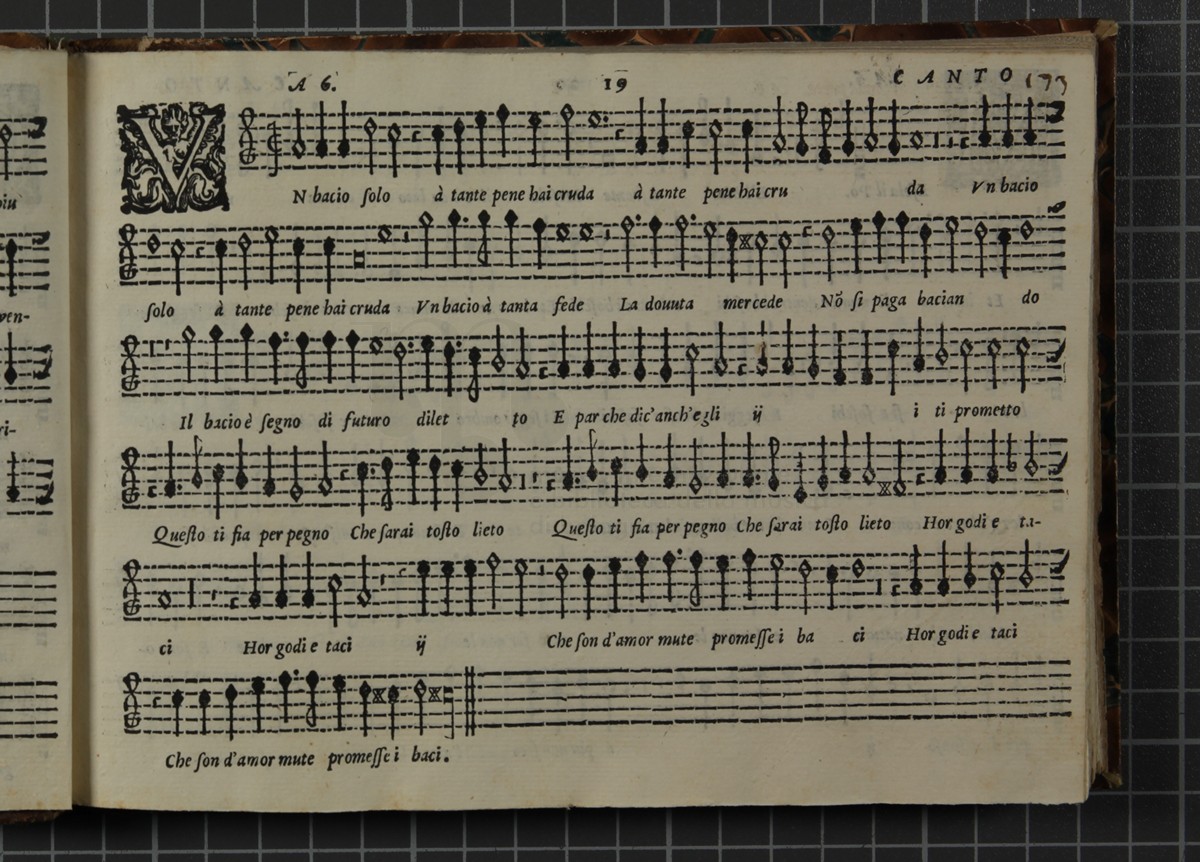 A 6.
19
CANTO
173
VN bacio solo à tante pene hai cruda à tante pene hai cru da Vn bacio
solo à tante pene hai cruda Vn bacio à tanta fede La douuta mercede Nõ si paga bacian do
Il bacio è segno di futuro dilet to E par che dic'anch'egli ij i ti prometto
Questo ti sia per pegno Che sarai tosto lieto Questo ti sia per pegno Che sarai tosto lieto Hor godi e ta-
ci Hor godi e taci ij Che son d'amor mute promesse i ba ci Hor godi e taci
Che son d'amor mute promesse i baci.